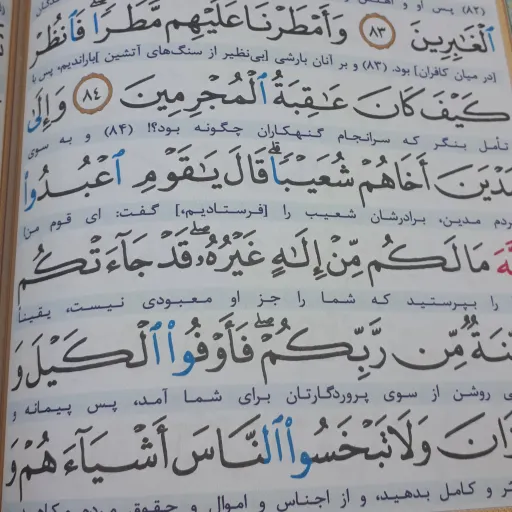 (۸۲) پس او و
ٱلْغَـٰبِرِينَ ٨٣ وَأَمْطَرْنَا عَلَيْهِم مَّطَرًا ۖ فَٱنظُرْ
[در میان کافران] بود. (۸۳) و بر آنان بارشی [بی‌نظیر از سنگ‌های آتشین] باراندیم، پس با
كَيْفَ كَانَ عَـٰقِبَةُ ٱلْمُجْرِمِينَ ٨٤ وَإِلَىٰ
تأمل بنگر که سرانجام گنهکاران چگونه بود؟! (۸۴) و به سوی
مَدْيَنَ أَخَاهُمْ شُعَيْبًا ۗ قَالَ يَـٰقَوْمِ ٱعْبُدُوا۟
مردم مدین، برادرشان شعیب را [فرستادیم،] گفت: ای قوم من!
مَا لَكُم مِّنْ إِلَـٰهٍ غَيْرُهُۥ ۖ قَدْ جَآءَتْكُم
را بپرستید که شما را جز او معبودی نیست، یقیناً
مِّن رَّبِّكُمْ ۖ فَأَوْفُوا۟ ٱلْكَيْلَ وَ
روشن از سوی پروردگارتان برای شما آمد، پس پیمانه و
وَلَا تَبْخَسُوا۟ ٱلنَّاسَ أَشْيَآءَهُمْ وَ
و کامل بدهید، و از اجناس و اموال و حقوق مردم